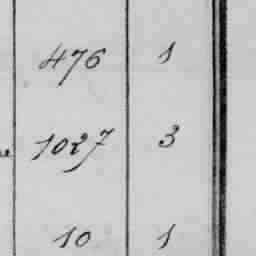 476 1
1027 3
10 1